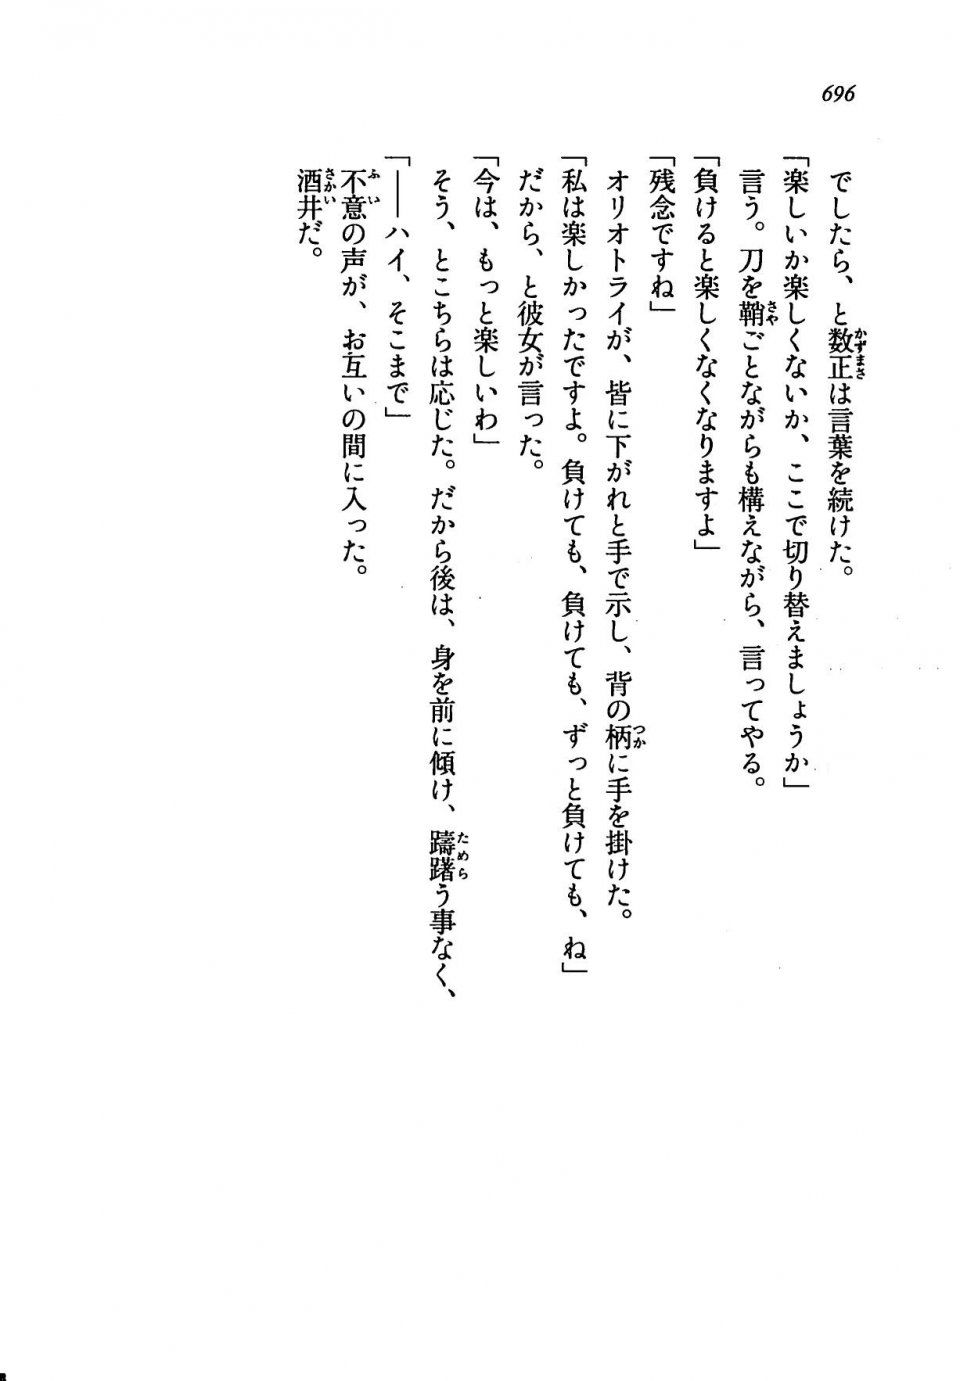 696
でしたら、と数正は言葉を続けた。
「楽しいか楽しくないか、ここで切り替えましょうか」
言う。刀を鞘ごとながらも構えながら、言ってやる。
「負けると楽しくなくなりますよ」
「残念ですね」
オリオトライが、皆に下がれと手で示し、背の柄に手を掛けた。
「私は楽しかったですよ。負けても、負けても、ずっと負けても、ね」
だから、と彼女が言った。
「今は、もっと楽しいわ」
そう、とこちらは応じた。だから後は、身を前に傾け、躊躇う事なく、
「――ハイ、そこまで」
不意の声が、お互いの間に入った。
酒井だ。